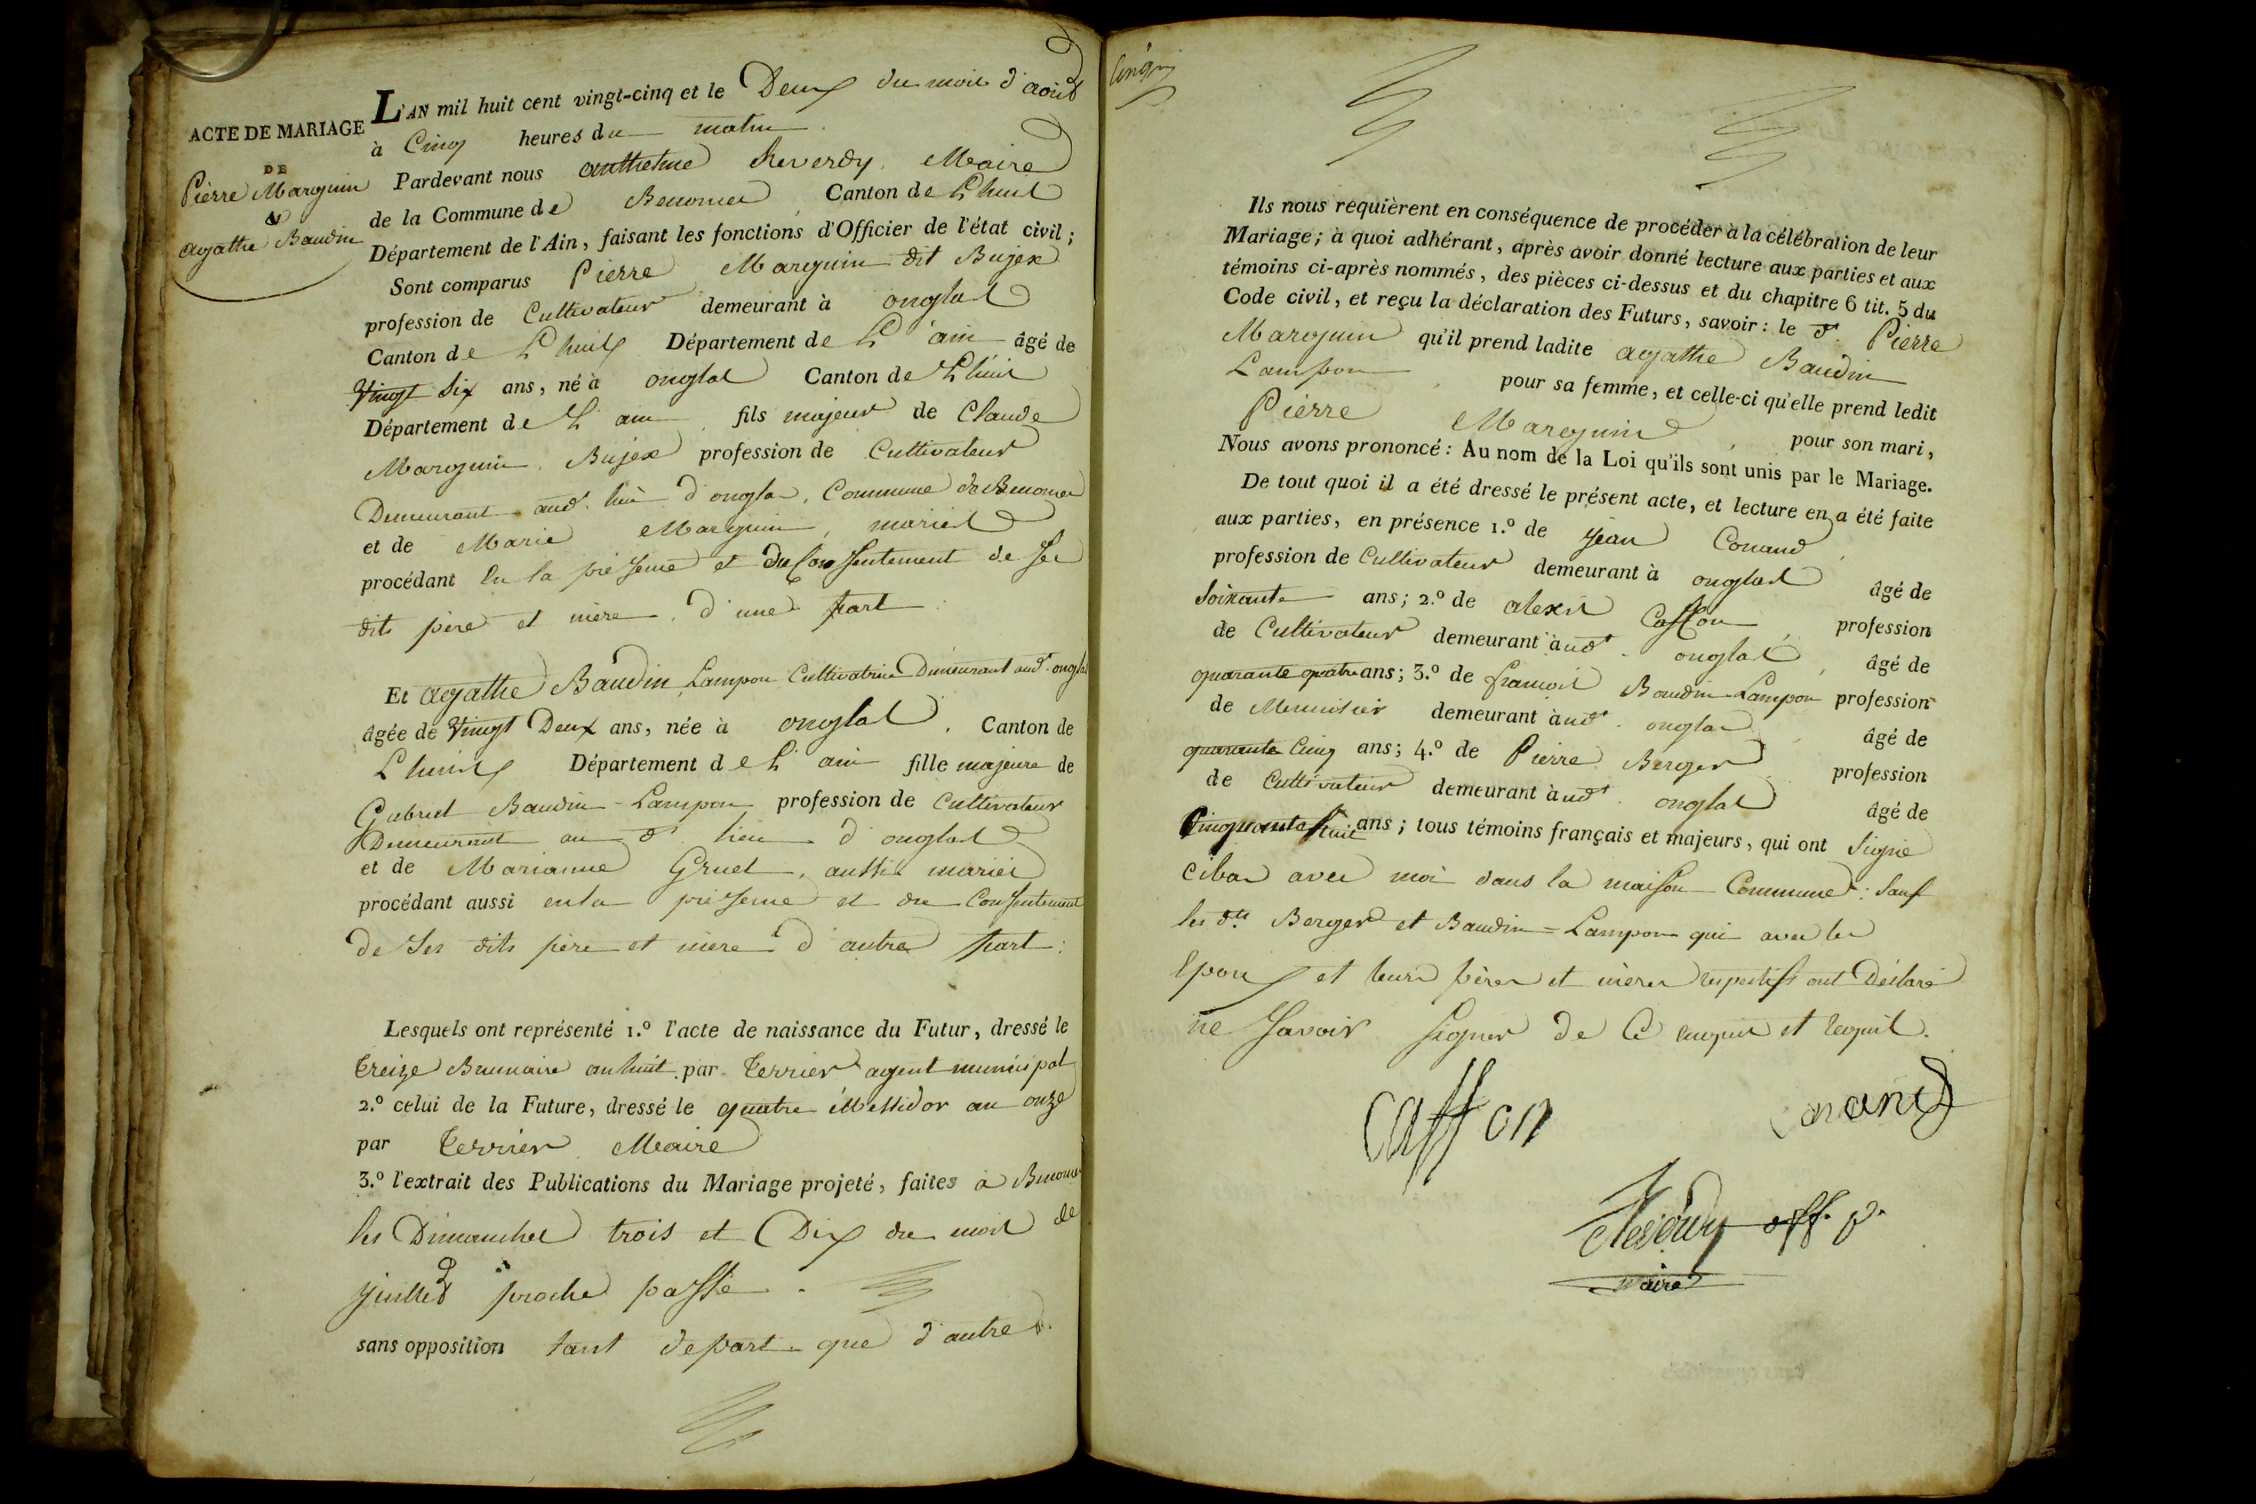 ACTE DE MARIAGE
DE
Pierre Marguin
&
agathe Baudin
L'AN mil huit cent vingt-cinq et le Deux du mois d'août
à Cinq heures du matin
Pardevant nous anthelme Reverdy Maire
de la Commune de Benonce Canton de Lhuis
Département de l'Ain, faisant les fonctions d'Officier de l'état civil;
Sont comparus Pierre Marguin dit Bujex
profession de Cultivateur demeurant à onglas
Canton de Lhuis Département de L'ain âgé de
Vingt Six ans, né à onglas Canton de Lhuis
Département de L'ain fils majeur de Claude
Marguin Bujex profession de Cultivateur
Demeurant aud. lieu d'onglas, Commune de Benonce
et de Marie Marguin, mariés
procédant En la présence et du Consentement de Ses
dits père et mère, d'une part
Et agathe Baudin Lampon Cultivatrice Demeurant aud. onglas
âgée de Vingt Deux ans, née à onglas, Canton de
Lhuis Département de L'ain fille majeure de
Gabriel Baudin-Lampon profession de Cultivateur
Demeurant au d. lieu d'onglas
et de Marianne Gruet, aussi mariés
procédant aussi en la présence et du Consentement
de Ses dits père et mère d'autre part:
Lesquels ont représenté 1.º l'acte de naissance du Futur, dressé le
treize Brumaire an huit par terrier agent municipal
2.º celui de la Future, dressé le quatre Messidor an onze
par terrier Maire
3.º l'extrait des Publications du Mariage projeté, faites à Benonce
les Dimanches trois et Dix du mois de
juillet proche passé.
sans opposition tant de part que d'autre.
Cinq
Ils nous requièrent en conséquence de procéder à la célébration de leur
Mariage; à quoi adhérant, après avoir donné lecture aux parties et aux
témoins ci-après nommés, des pièces ci-dessus et du chapitre 6 tit. 5 du
Code civil, et reçu la déclaration des Futurs, savoir: le d. Pierre
Marguin qu'il prend ladite agathe Baudin
Lampon pour sa femme, et celle-ci qu'elle prend ledit
Pierre Marguin, pour son mari,
Nous avons prononcé: Au nom de la Loi qu'ils sont unis par le Mariage.
De tout quoi il a été dressé le présent acte, et lecture en a été faite
aux parties, en présence 1.º de jean Conand
profession de Cultivateur demeurant à onglas âgé de
Soixante ans; 2.º de alexis Caffon profession
de Cultivateur demeurant à ud. onglas, âgé de
quarante quatre ans; 3.º de françois Baudin-Lampon profession
de Menuisier demeurant à ud. onglas âgé de
quarante Cinq ans; 4.º de Pierre Berger profession
de Cultivateur demeurant à ud. onglas âgé de
Cinquante huit ans; tous témoins français et majeurs, qui ont Signé
cibas avec moi dans la maison Commune: Sauf
les dts Berger et Baudin=Lampon qui avec les
Epoux et leurs pères et mères respectifs ont Déclaré
ne Savoir Signer de Ce enquis et requis.
Caffon
Conand
Reverdy off. p.
maire